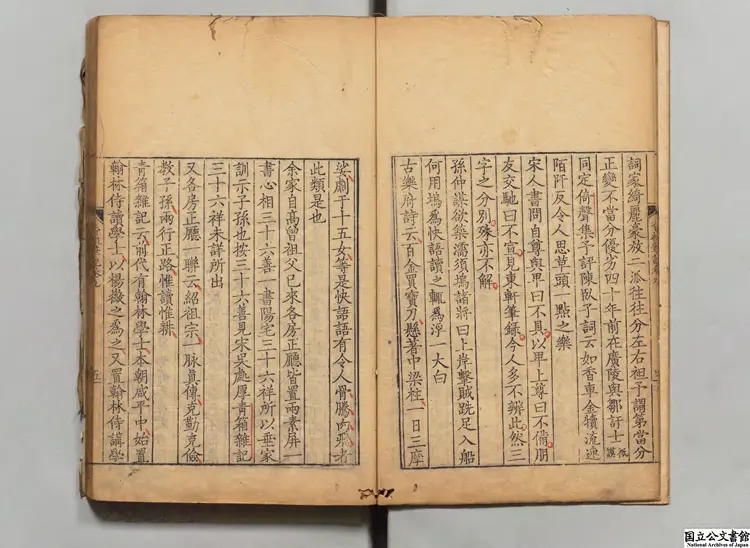 詞家綺麗豪放二派往往分左右袒予謂第當分
正變不當分優劣四十年前在廣陵與鄒訏士祗謨
同定倚聲集予評陳臥子詞云如香車金犢流連
陌阡反令人思草頭一點之樂
宋人書問自尊與卑曰不具以卑上尊曰不備朋
友交馳曰不宣見東軒筆錄今人多不辨此然三
字之分別殊亦不解
孫仲謀欲築濡須塢諸將曰上岸擊賊跣足入船
何用塢爲快語讀之輒爲浮一大白
古樂府詩云百金買寶刀懸著中梁柱一日三摩
娑劇于十五女等是快語語有令人骨騰肉飛者
此類是也
余家自高曾祖父已來各房正廳皆置兩素屏一
書心相三十六善一書陽宅三十六祥所以垂家
訓示子孫也按三十六善見宋吳處厚青箱雜記
三十六祥未詳所出
又各房正廳一聯云紹祖宗一脉真傳克勤克儉
教子孫兩行正路惟讀惟耕
青箱雜記云前代有翰林學士本朝咸平中始置
翰林侍讀學士以楊徽之爲之又置翰林侍講學
国立公文書館
National Archives of Japan